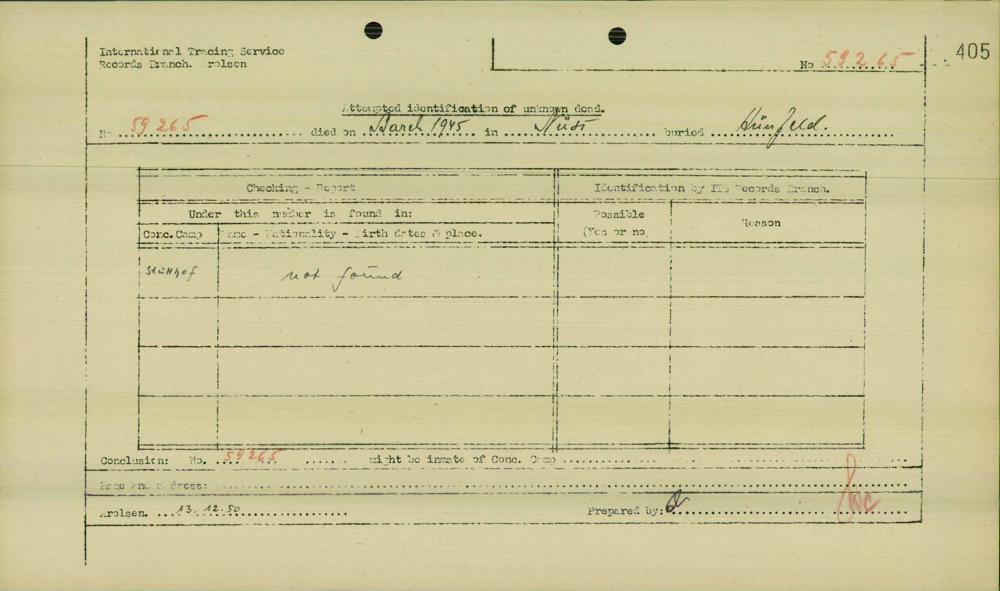 International Tracing Service
Records Branch. Arolsen
No 59265
405
Attempted identification of unknown dead.
No 59265 died on March 1945 in Nüst buried Hünfeld.
Checking - Report Identification by ITS Records Branch.
Under this number is found in: Possible (Yes or no) Reason
Conc. Camp Name - Nationality - Birth dates & place.
Stutthof not found
Conclusion: No. 59265 might be inmate of Conc. Camp
Name and address:
Arolsen. 13.12.50 Prepared by: